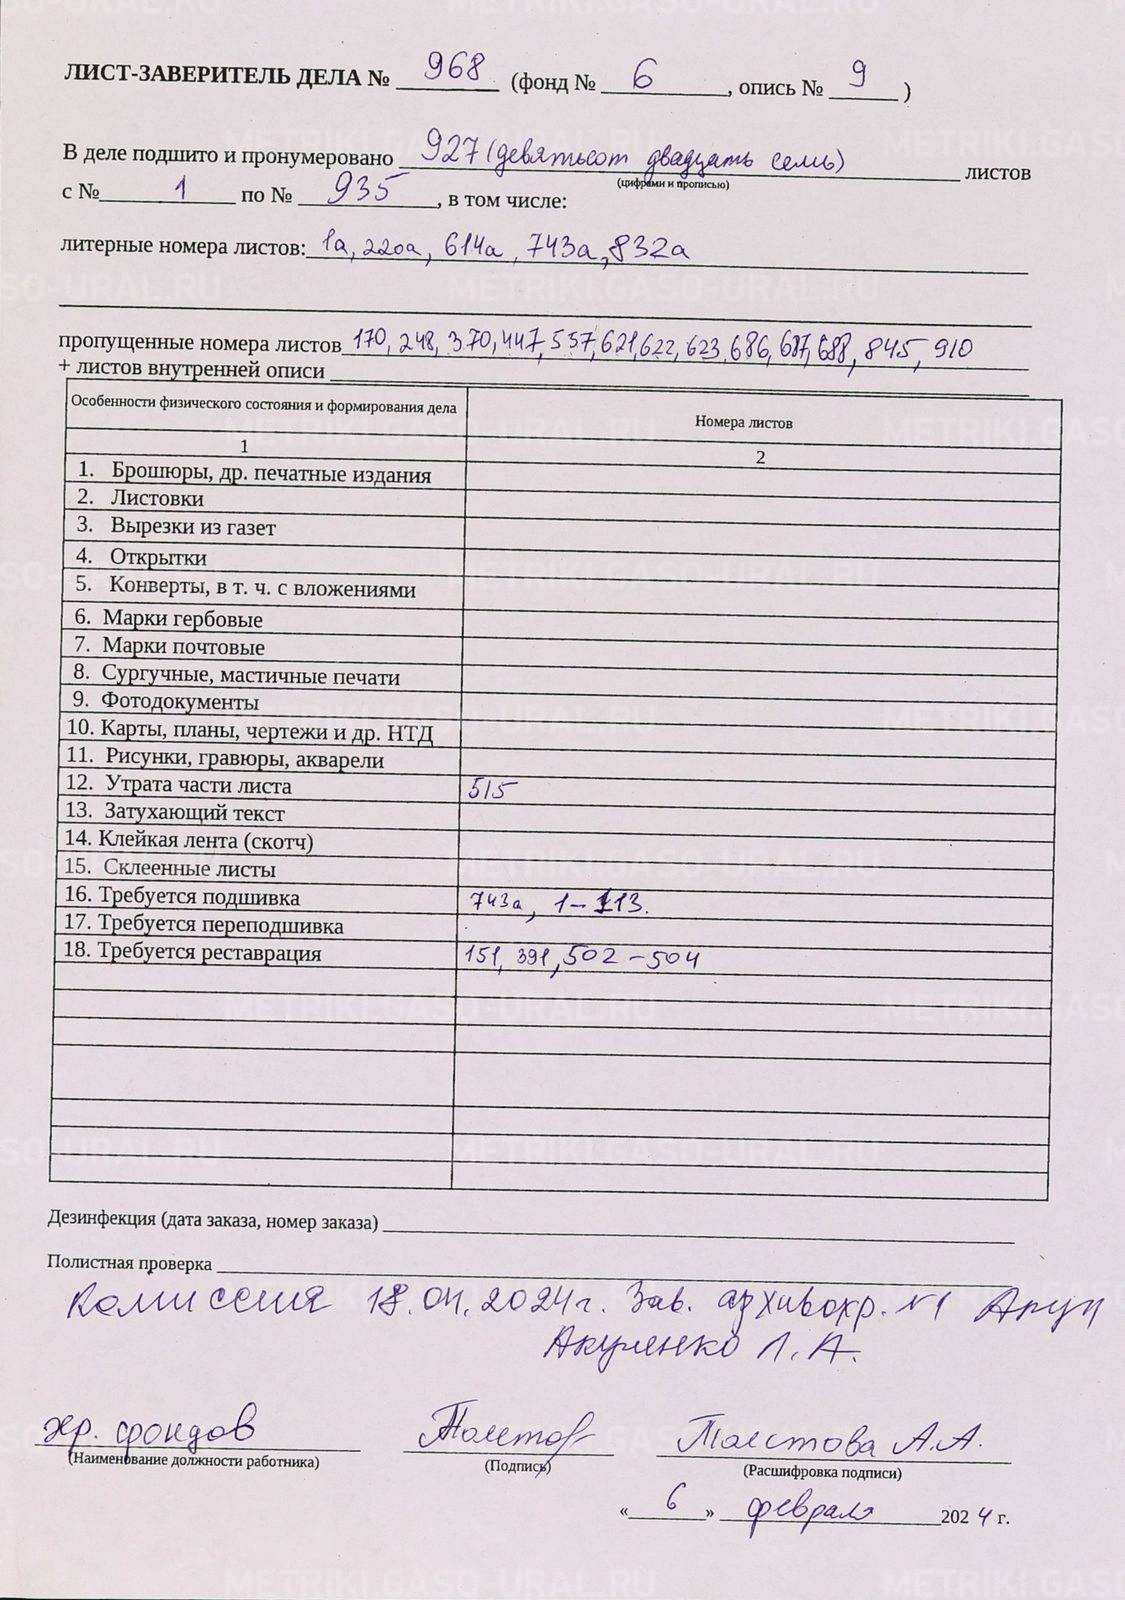 ЛИСТ-ЗАВЕРИТЕЛЬ ДЕЛА № 968 (фонд № 6, опись № 9)
В деле подшито и пронумеровано 927 (девятьсот двадцать семь) листов
(цифрами и прописью)
с № 1 по № 935, в том числе:
литерные номера листов: 1а, 220а, 614а, 743а, 832а
пропущенные номера листов 170, 248, 370, 447, 537, 621, 622, 623, 686, 687, 688, 845, 910
+ листов внутренней описи
Особенности физического состояния и формирования дела Номера листов
1 2
1. Брошюры, др. печатные издания
2. Листовки
3. Вырезки из газет
4. Открытки
5. Конверты, в т. ч. с вложениями
6. Марки гербовые
7. Марки почтовые
8. Сургучные, мастичные печати
9. Фотодокументы
10. Карты, планы, чертежи и др. НТД
11. Рисунки, гравюры, акварели
12. Утрата части листа 515
13. Затухающий текст
14. Клейкая лента (скотч)
15. Склеенные листы
16. Требуется подшивка 743а, 1-113.
17. Требуется переподшивка
18. Требуется реставрация 151, 391, 502-504
Дезинфекция (дата заказа, номер заказа)
Полистная проверка
Комиссия 18.04.2024г. Зав. архивохр. №1
Акуленко Л.А.
хр. фондов Толстова А.А.
(Наименование должности работника) (Подпись) (Расшифровка подписи)
« 6 » февраля 2024 г.
METRIKI.GASO-URAL.RU